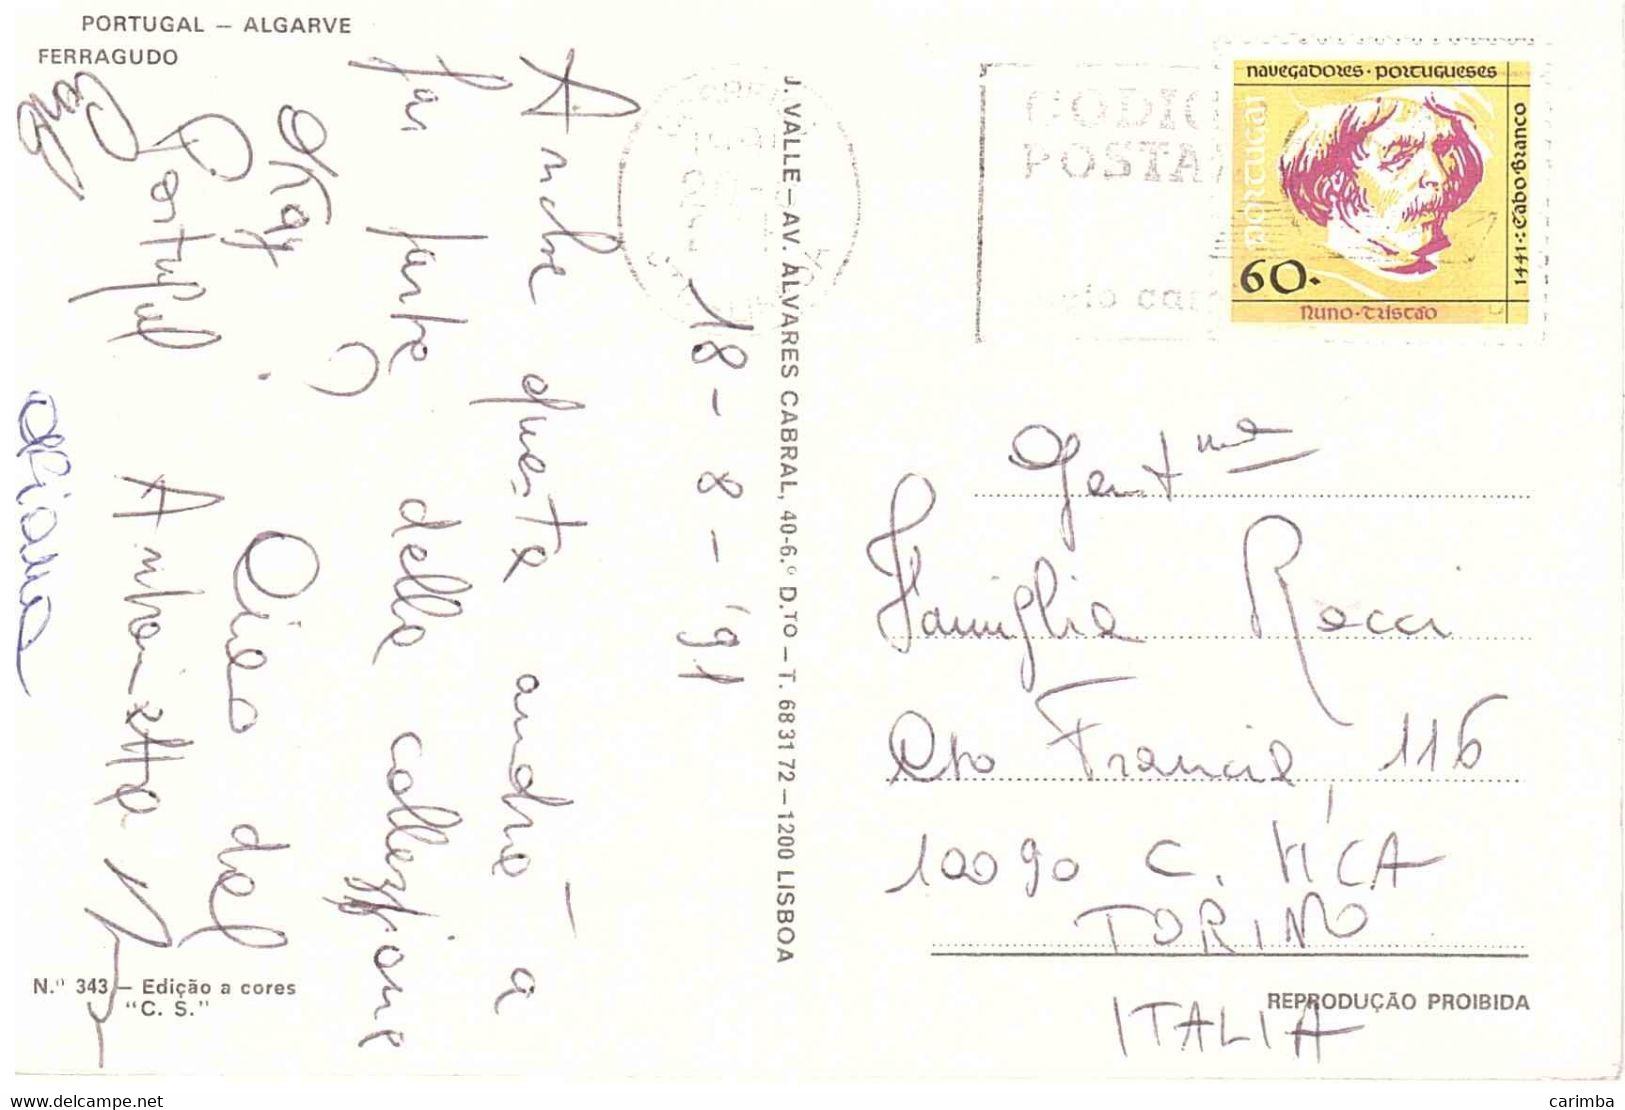 PORTUGAL — ALGARVE
FERRAGUDO
18-8-'91
Anche questa andrà a
far parte della collezione
OKay? Ciao dal
Portugal. Antonietta
ORIANA
N.º 343 — Edição a cores
"C. S."
J. VALLE — AV. ÁLVARES CABRAL, 40-6.º D.TO — T. 683172 — 1200 LISBOA
CODIGO
POSTAL
navegadores · portugueses
portugal
1441: Cabo Branco
60.
nuno · tristão
Gent.ma
Famiglia Rocci
C.so Francia 116
10090 C. VICA
TORINO
ITALIA
REPRODUÇÃO PROIBIDA
delcampe.net
carimba